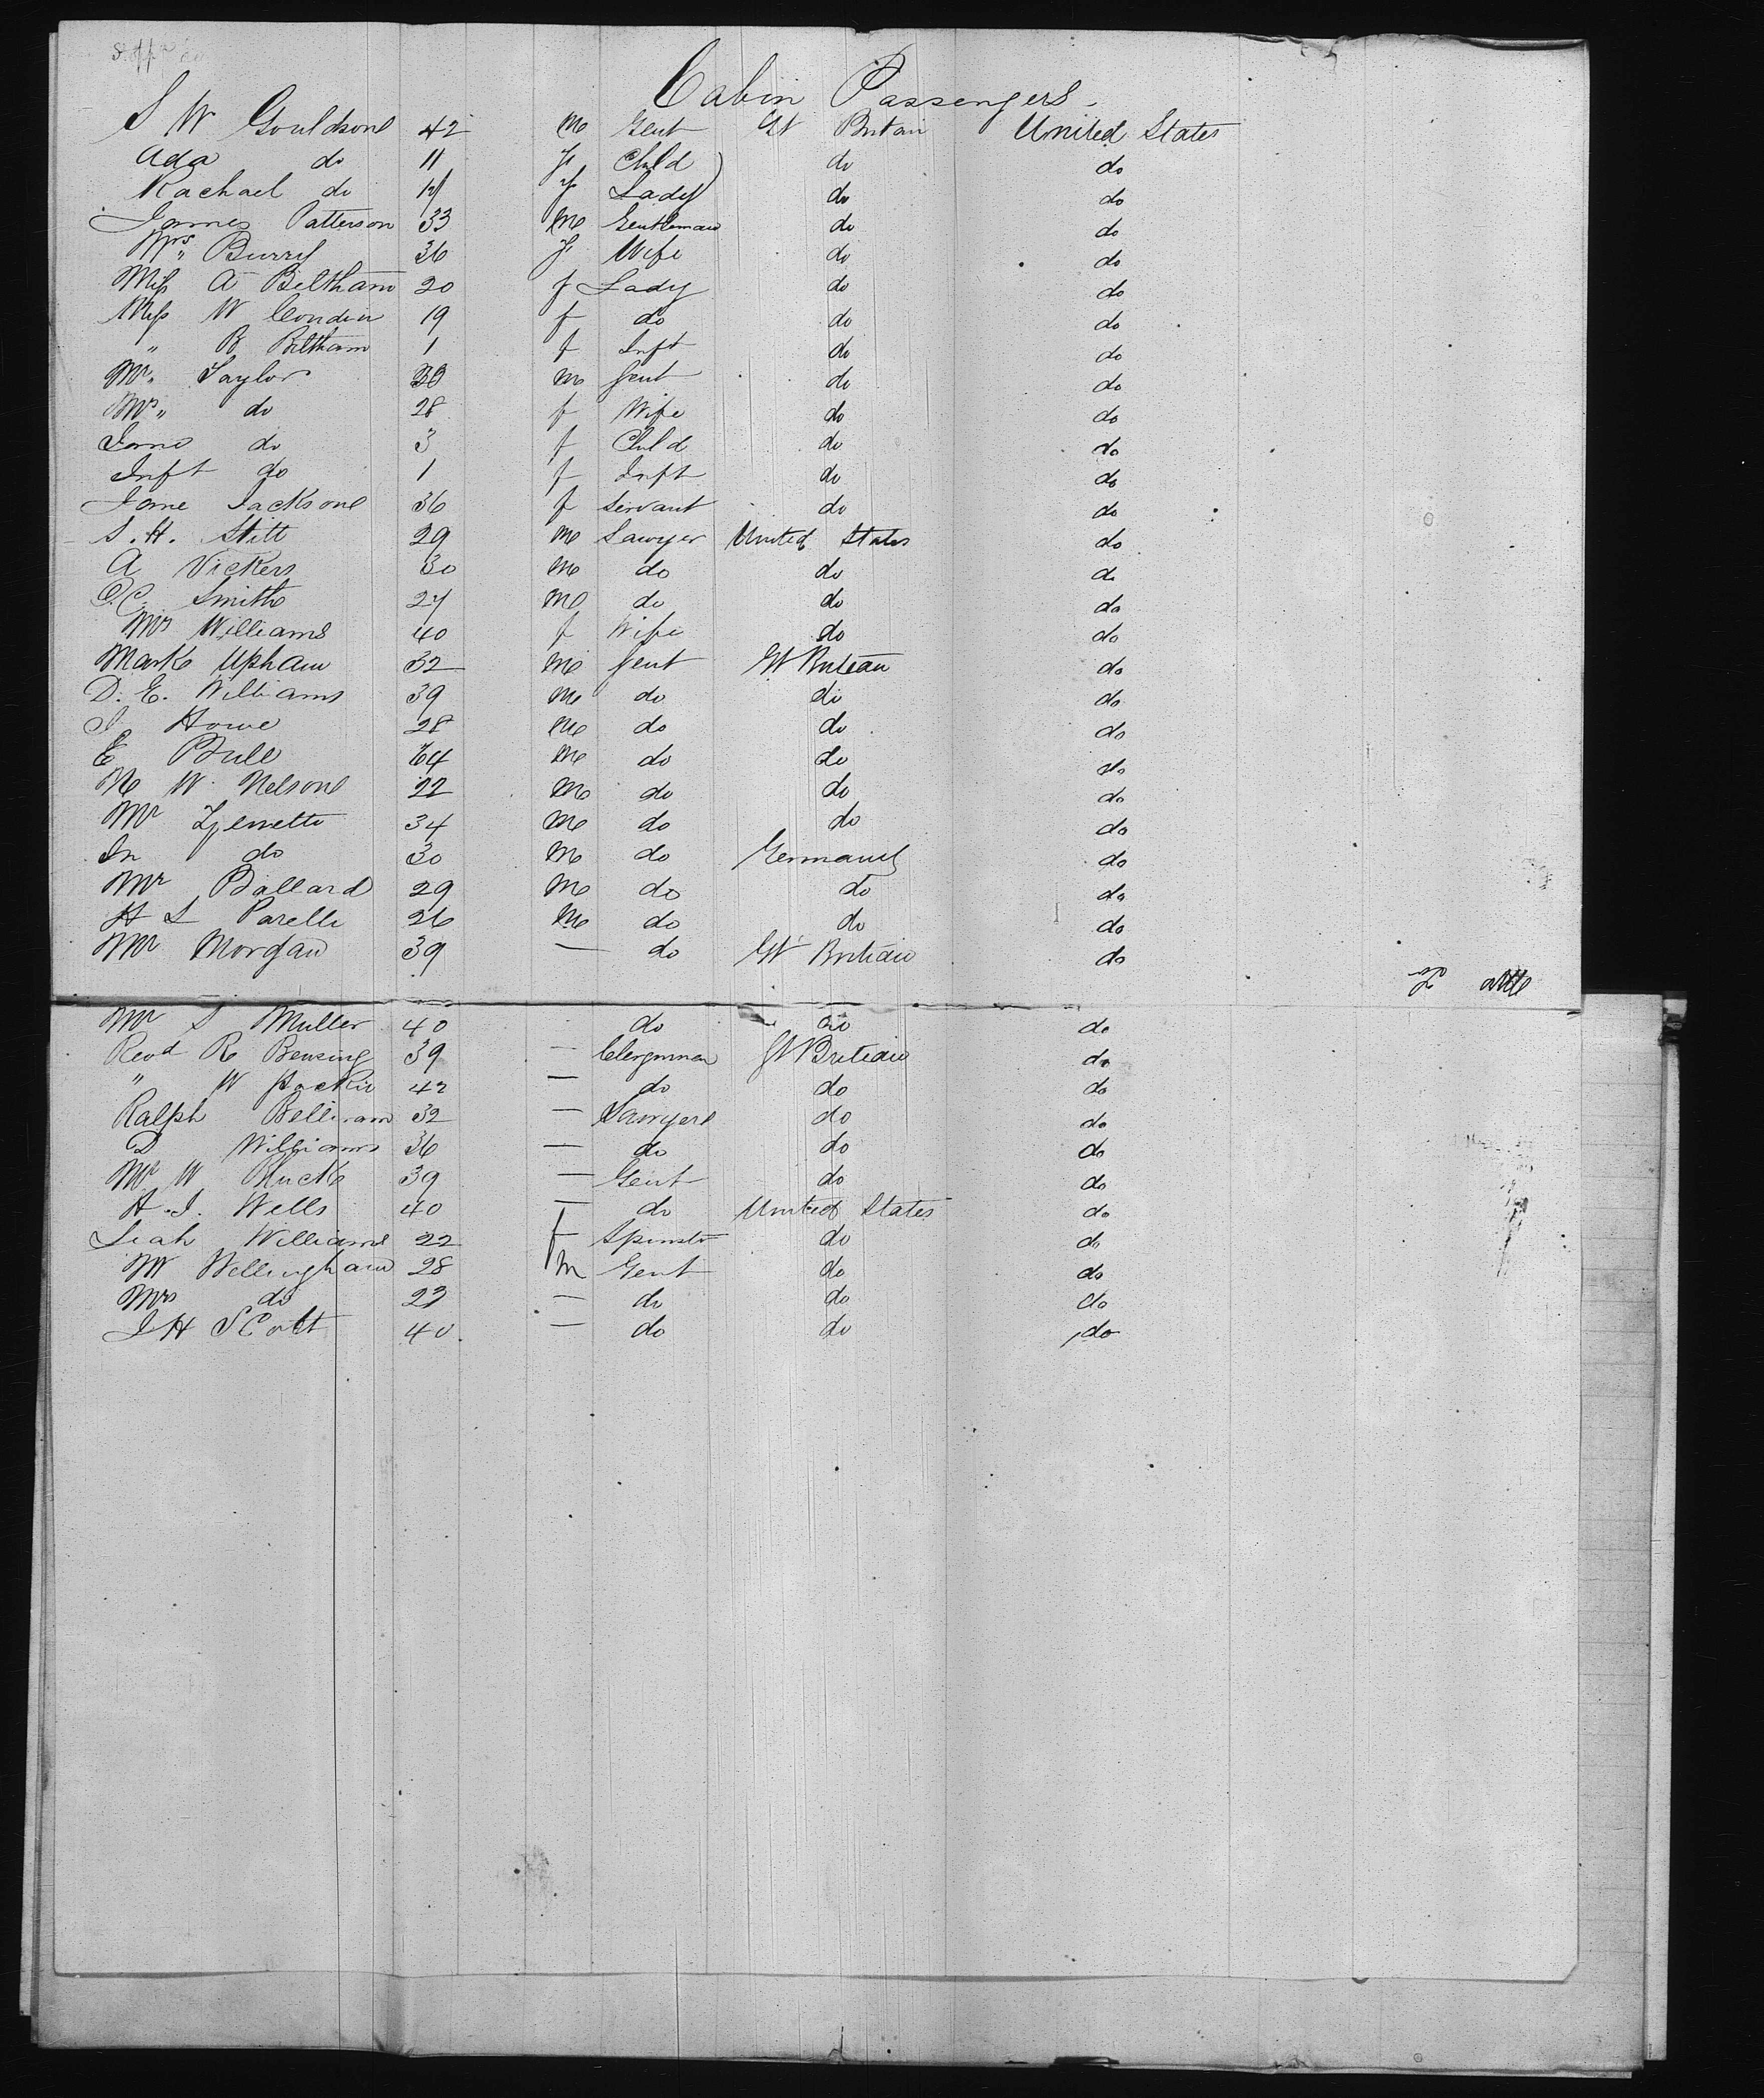 Cabin Passengers
S W Gouldsone 42 m Gent Gt Britain United States
Ada do 11 f Child do do
Rachael do f Lady do do
James Patterson 33 m Gentleman do do
Mrs " Burry 36 f Wife do do
Miss A Beltham 20 f Lady do do
Miss W Condin 19 f do do do
" B Beltham 1 f Inft do do
Mr. Taylor 30 m Gent do do
Mrs " do 28 f Wife do do
Jane do 3 f Child do do
Inft do 1 f Inft do do
Jane Jacksone 36 f Servant do do
S. H. Stitt 29 m Lawyer United States do
A Vickers 30 m do do do
Smith 27 m do do do
Mrs Williams 40 f Wife do do
Mark Upham 32 m Gent Gt Britain do
D. E. Williams 39 m do do do
J Howe 28 m do do do
E Bull 64 m do do do
M W. Nelsone 22 m do do do
Mr 34 m do do do
Jn do 30 m do Germany do
Mr Ballard 29 m do do do
H L Parelle 26 m do do do
Mr Morgan 39 — do Gt Britain do
Mr S Muller 40 do do do
Revd R Bensing 39 — Clergyman Gt Britain do
" W Packie 42 — do do do
Ralph Belliram 32 — Lawyere do do
D Williams 36 — do do do
Mr W Pluck 39 — Gent do do
H. J. Wells 40 — do United States do
Leah Williams 22 f Spinster do do
Mr Wellingham 28 m Gent do do
Mrs do 23 — do do do
J H Scott 40 — do do do